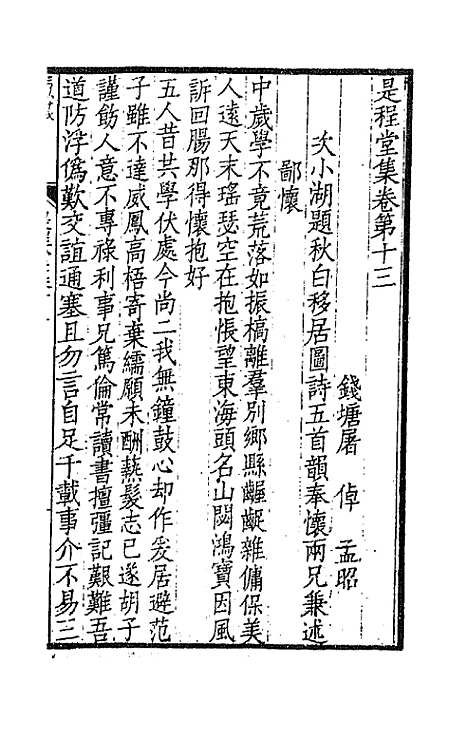 是程堂集卷第十三
錢塘屠　倬　孟昭
次小湖題秋白移居圖詩五首韻奉懷兩兄兼述
鄙懷
中歲學不竟荒落如振槁離羣別鄉縣齷齪雜傭保美
人遠天末瑤瑟空在抱悵望東海頭名山閟鴻寶因風
訴回腸那得懷抱好
五人昔共學伏處今尚二我無鐘鼓心却作爰居避范
子雖不達威鳳高梧寄棄繻願未酬爇髮志已遂胡子
謹飭人意不專祿利事兄篤倫常讀書擅彊記艱難吾
道防浮僞歎交誼通塞且勿言自足千載事介不易三